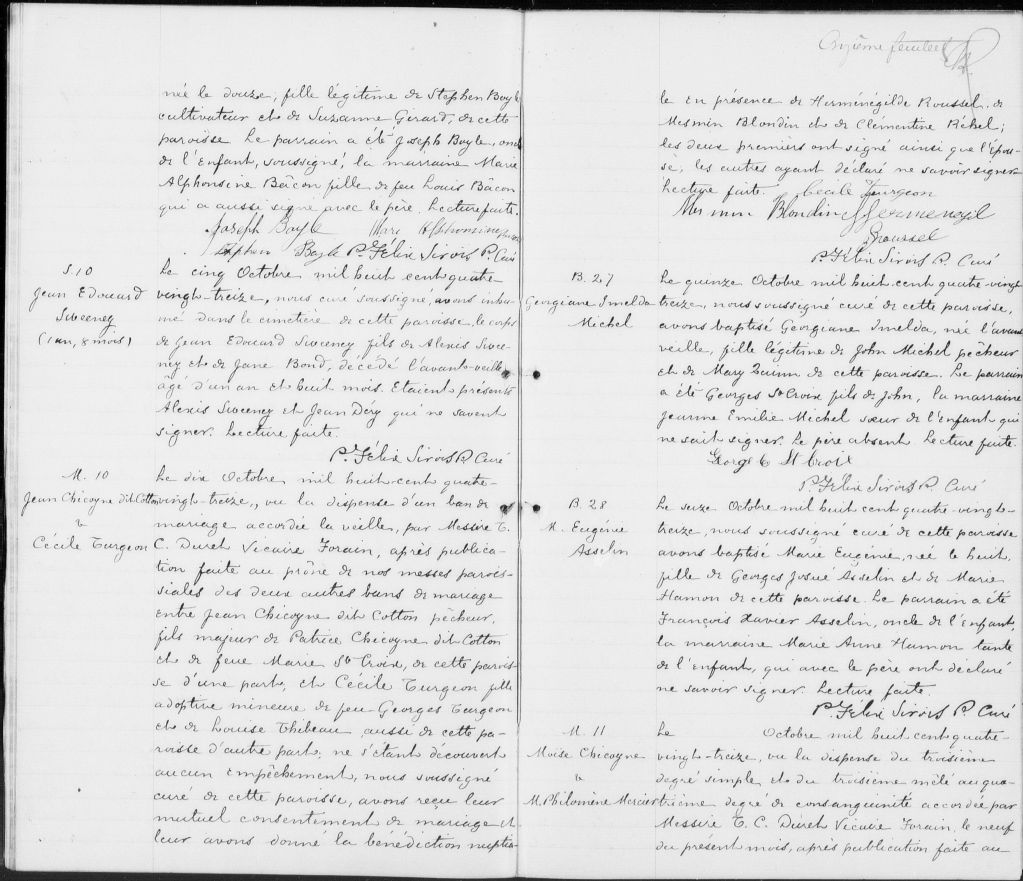 née le douze, fille légitime de Stephen Boyle
cultivateur et de Suzanne Girard, de cette
paroisse. Le parrain a été Joseph Boyle, oncle
de l'Enfant, soussigné, la marraine Marie
Alphonsine Bâcon fille de feu Louis Bâcon
qui a aussi signé avec le père. Lecture faite.
Joseph Boyle Marie Alphonsine
Stephen Boyle Ps Félix Sirois P. Curé
S. 10
Jean Edouard
Sweeney
(1 an, 8 mois)
Le cinq Octobre mil huit cent quatre-
vingt-treize, nous curé soussigné, avons inhu-
mé dans le cimetière de cette paroisse, le corps
de Jean Edouard Sweeney fils de Alexis Swee-
ney et de Jane Bond, décédé l'avant-veille,
âgé d'un an et huit mois. Etaient présents
Alexis Sweeney et Jean Déry qui ne savent
signer. Lecture faite.
Ps Félix Sirois P. Curé
M. 10
Jean Chicoyne dit Cotton
&
Cécile Turgeon
Le dix Octobre mil huit-cent quatre-
vingt-treize, vu la dispense d'un ban de
mariage accordée la veille, par Messire T.
C. Duret Vicaire Forain, après publica-
tion faite au prône de nos messes parois-
siales des deux autres bans de mariage
entre Jean Chicoyne dit Cotton pêcheur,
fils majeur de Patrice Chicoyne dit Cotton
et de feue Marie Ste Croix, de cette parois-
se d'une part; et Cécile Turgeon fille
adoptive mineure de feu Georges Turgeon
et de Louise Thibeau, aussi de cette pa-
roisse d'autre part; ne s'étant découvert
aucun empêchement, nous soussigné
curé de cette paroisse, avons reçu leur
mutuel consentement de mariage et
leur avons donné la bénédiction nuptia-
Onzième feuillet
le en présence de Herménégilde Roussel, de
Mesmin Blondin et de Clémentine Béhel;
les deux premiers ont signé ainsi que l'épou-
se; les autres ayant déclaré ne savoir signer
Lecture faite. Cecile Turgeon
Mesmin Blondin Hermenegil
Roussel
Ps Félix Sirois P. Curé
B. 27
Georgiane Imelda
Michel
Le quinze Octobre mil huit-cent quatre-vingt-
treize, nous soussigné curé de cette paroisse,
avons baptisé Georgiane Imelda, née l'avant
veille, fille légitime de John Michel pêcheur
et de Mary Quinn de cette paroisse. Le parrain
a été Georges St Croix fils de John, la marraine
Jeanne Emilie Michel sœur de l'Enfant qui
ne sait signer. Le père absent. Lecture faite.
George St Croix
Ps Félix Sirois P. Curé
B. 28
M. Eugénie
Asselin
Le seize Octobre mil huit cent quatre-vingt-
treize, nous soussigné curé de cette paroisse
avons baptisé Marie Eugénie, née le huit,
fille de Georges Josué Asselin et de Marie
Hamon de cette paroisse. Le parrain a été
François Xavier Asselin, oncle de l'Enfant,
la marraine Marie Anne Hamon tante
de l'Enfant, qui avec le père ont déclaré
ne savoir signer. Lecture faite.
Ps Félix Sirois P. Curé
M. 11
Moïse Chicoyne
&
M. Philomène Mercier
Le Octobre mil huit cent quatre-
vingt-treize, vu la dispense du troisième
degré simple et du troisième mêlé au qua-
trième degré de consanguinité accordée par
Messire T. C. Duret Vicaire Forain, le neuf
du présent mois, après publication faite au